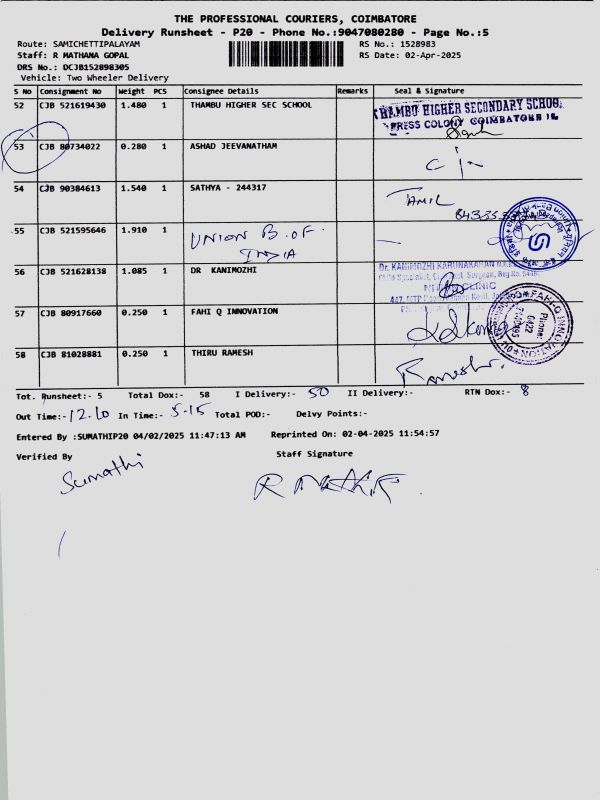 THE PROFESSIONAL COURIERS, COIMBATORE
Delivery Runsheet - P20 - Phone No.:9047080280 - Page No.:5
Route: SAMICHETTIPALAYAM RS No.: 1528983
Staff: R MATHANA GOPAL RS Date: 02-Apr-2025
DRS No.: DCJB152898305
Vehicle: Two Wheeler Delivery
S No Consignment No Weight PCS Consignee Details Remarks Seal & Signature
52 CJB 521619430 1.480 1 THAMBU HIGHER SEC SCHOOL
THAMBU HIGHER SECONDARY SCHOOL
PRESS COLONY COIMBATORE
53 CJB 80734022 0.280 1 ASHAD JEEVANATHAM
54 CJB 90384613 1.540 1 SATHYA - 244317 TAMIL
55 CJB 521595646 1.910 1 UNION B. OF.
INDIA
56 CJB 521628138 1.085 1 DR KANIMOZHI
Dr. KANIMOZHI KARUNAKARAN
CLINIC
57 CJB 80917660 0.250 1 FAHI Q INNOVATION
FAHI-Q INNOVATION
Phone:
0422
58 CJB 81028881 0.250 1 THIRU RAMESH Ramesh.
Tot. Runsheet:- 5 Total Dox:- 58 I Delivery:- 50 II Delivery:- RTN Dox:- 8
Out Time:- 12.10 In Time:- 5.15 Total POD:- Delvy Points:-
Entered By :SUMATHIP20 04/02/2025 11:47:13 AM Reprinted On: 02-04-2025 11:54:57
Verified By Staff Signature
Sumathi